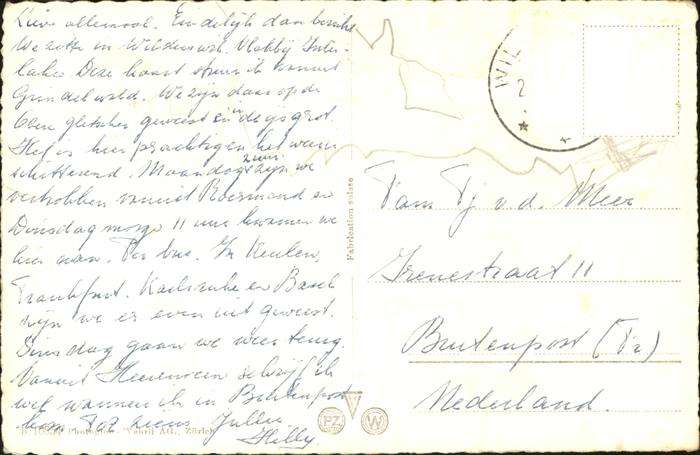 Lieve allemaal. Eindelijk dan bericht
We zitten in Wilderswil. Vlakbij Inter-
laken Deze kaart stuur ik vanuit
Grindelwald. We zijn daar op de
gletscher geweest en in de ijsgrot.
Het is hier prachtig en het weer
schitterend. Maandag 2 juni zijn we
vertrokken vanuit Roermond en
Dinsdag morge 11 uur kwamen we
hier aan. Per bus. In Keulen,
Frankfurt. Karlsruhe en Basel
zijn we er even uit geweest.
Dinsdag gaan we weer terug.
Vanuit Heerenveen schrijf ik
wel wanneer ik in Buitenpost
kom Tot ziens. Jullie
Hilly.
Fabrication suisse
WIL
2
Fam Tj v.d. Meer
Irenestraat 11
Buitenpost (Fr)
Nederland.
PZ
W
AG., Zürich